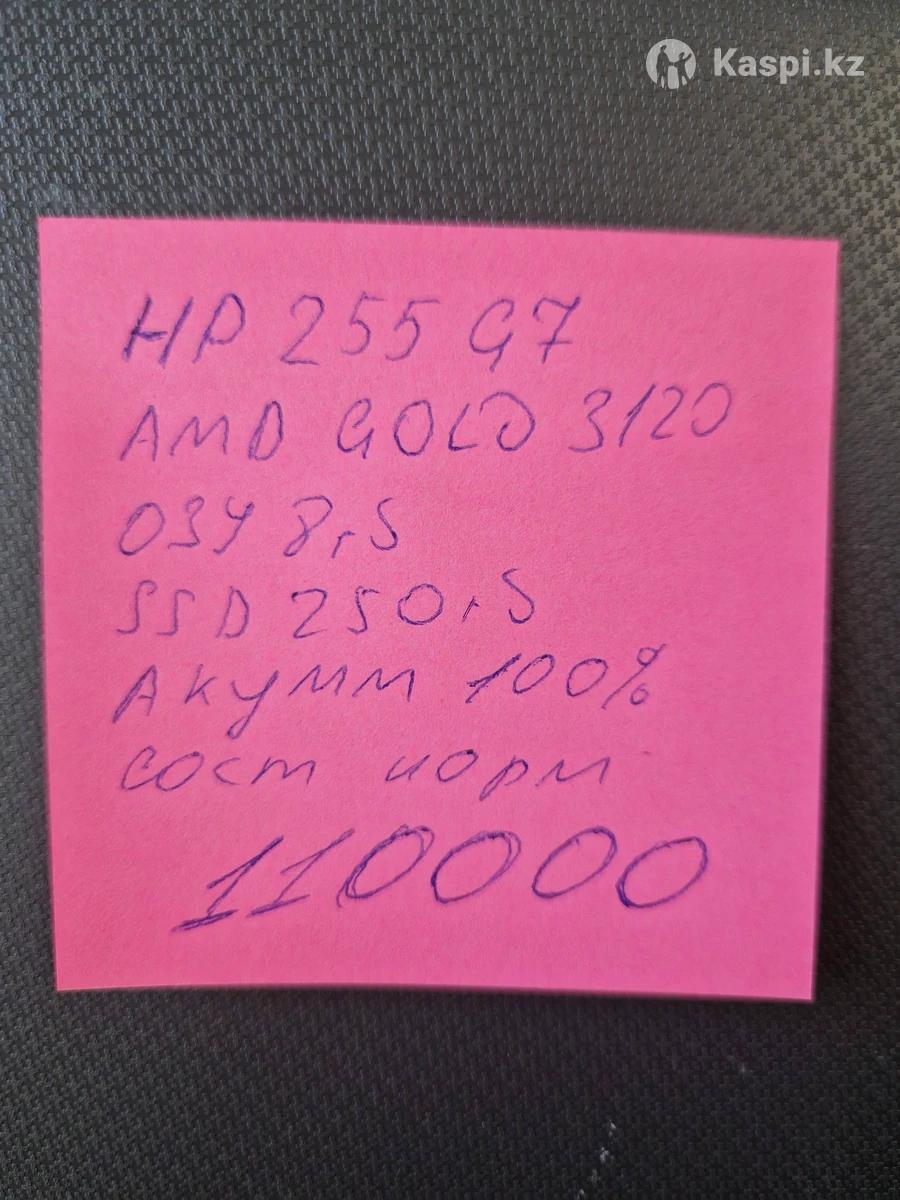 Kaspi.kz
HP 255 G7
AMD GOLD 3120
ОЗУ 8гб
SSD 250гб
Акумм 100%
сост норм
110000